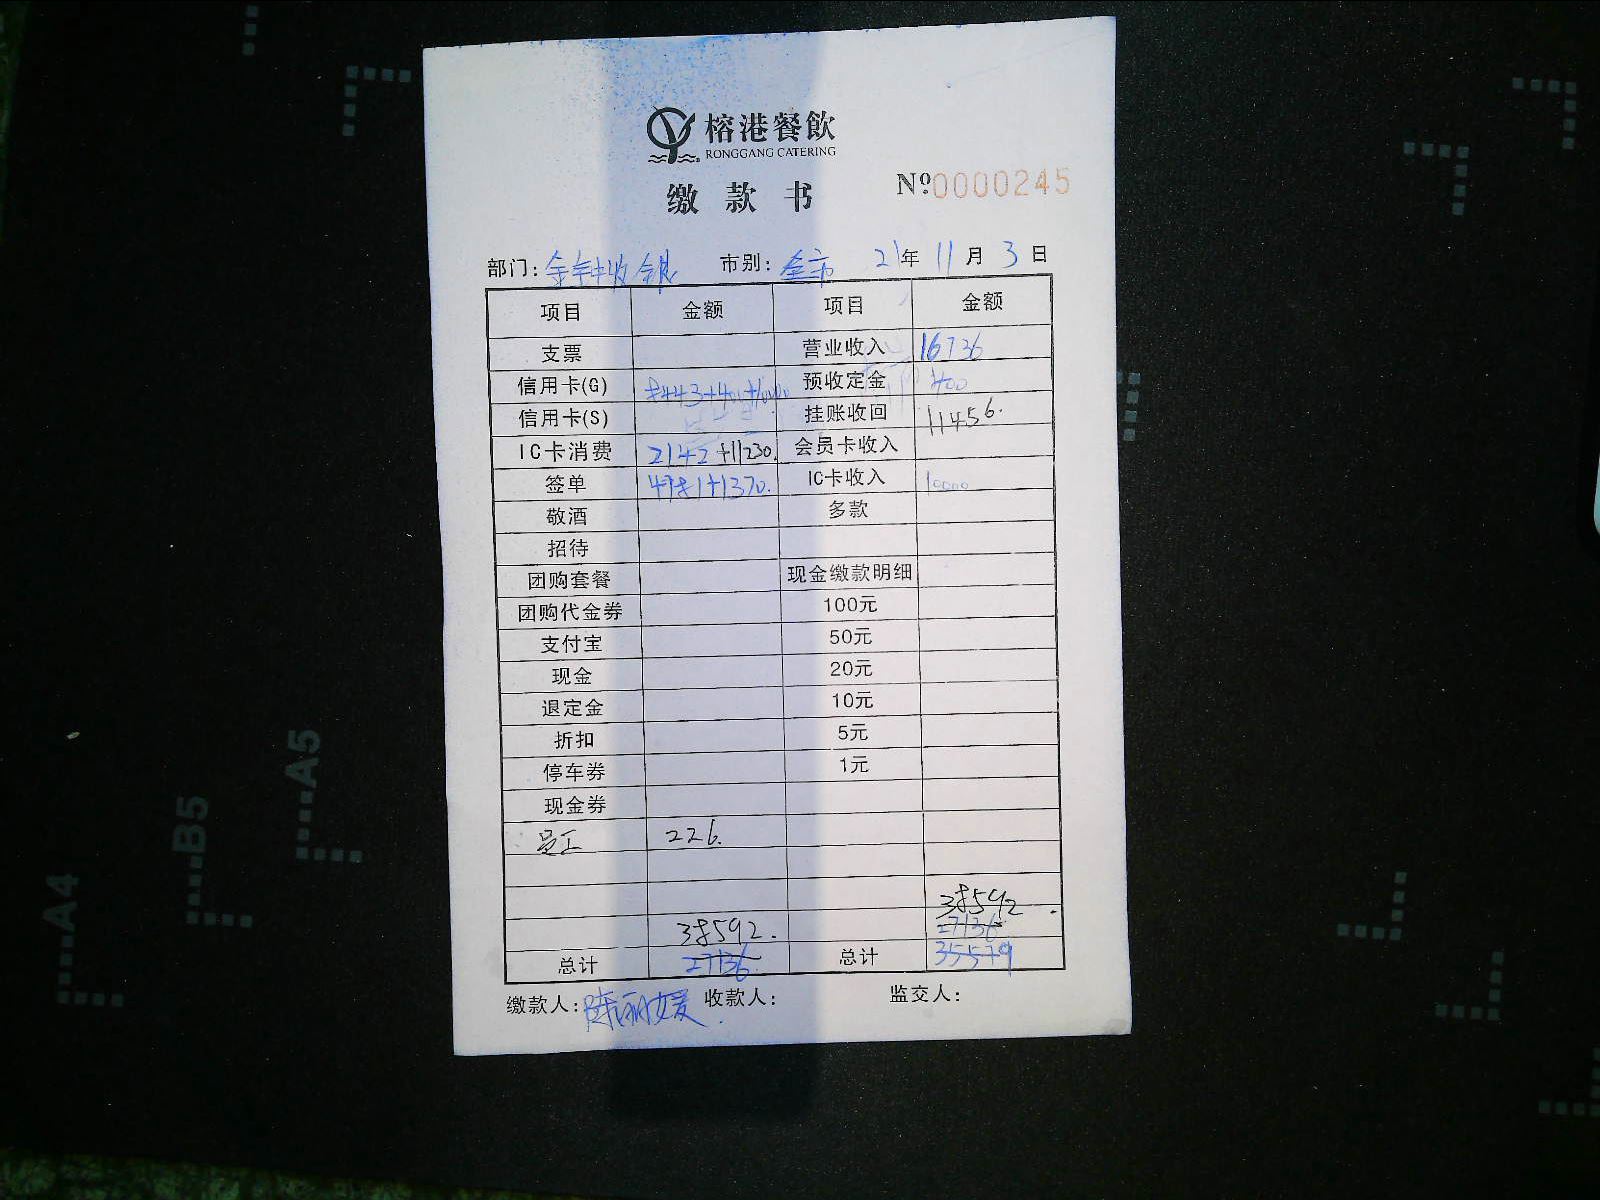 榕港餐飲
RONGGANG CATERING
缴款书
Nº0000245
部门: 金钟收银 市别: 全市 21年 11月 3日
项目 金额 项目 金额
支票 营业收入 16736
信用卡(G) 8443+400+10000 预收定金 400
信用卡(S) 挂账收回 11456.
IC卡消费 2142+11230. 会员卡收入
签单 4781+1370. IC卡收入 10000
敬酒 多款
招待
团购套餐 现金缴款明细
团购代金券 100元
支付宝 50元
现金 20元
退定金 10元
折扣 5元
停车券 1元
现金券
员工 226.
38592. 38592.
27136
总计 27136. 总计 35579
缴款人: 陈丽媛 收款人: 监交人:
A4
B5
A5